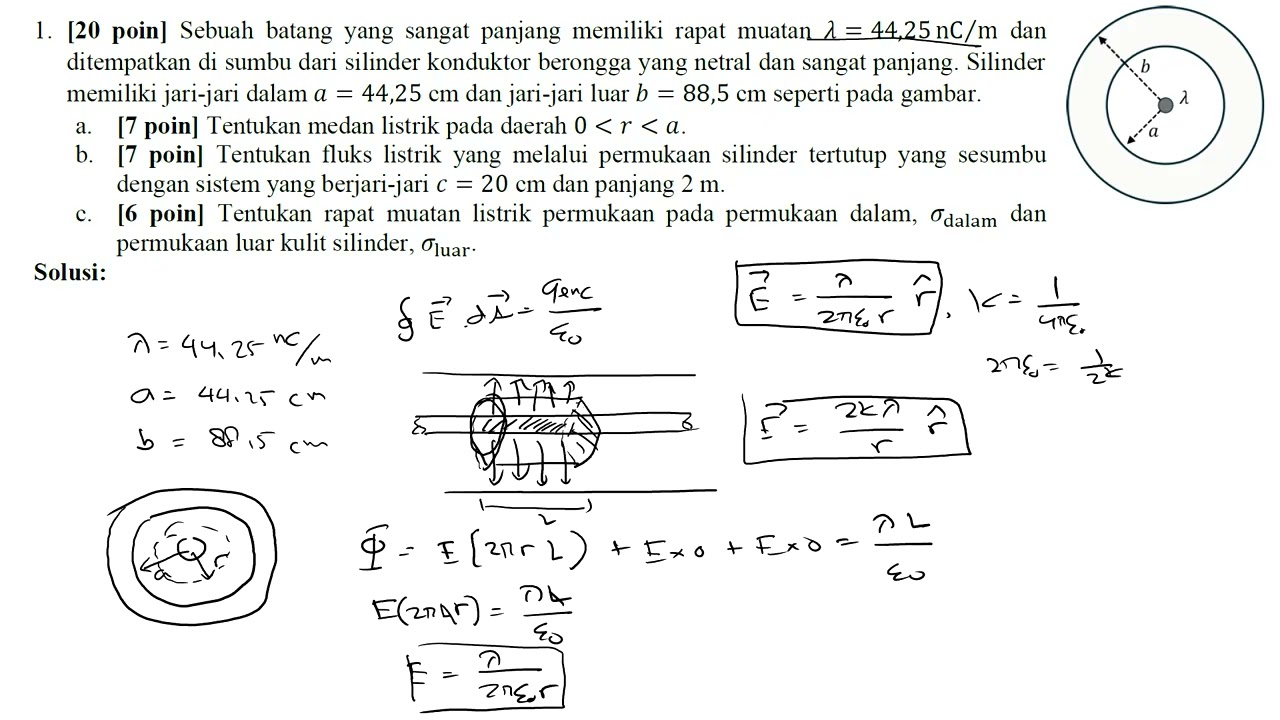 1. [20 poin] Sebuah batang yang sangat panjang memiliki rapat muatan λ = 44,25 nC/m dan
ditempatkan di sumbu dari silinder konduktor berongga yang netral dan sangat panjang. Silinder
memiliki jari-jari dalam a = 44,25 cm dan jari-jari luar b = 88,5 cm seperti pada gambar.
a. [7 poin] Tentukan medan listrik pada daerah 0 < r < a.
b. [7 poin] Tentukan fluks listrik yang melalui permukaan silinder tertutup yang sesumbu
dengan sistem yang berjari-jari c = 20 cm dan panjang 2 m.
c. [6 poin] Tentukan rapat muatan listrik permukaan pada permukaan dalam, σ_dalam dan
permukaan luar kulit silinder, σ_luar.
b
λ
a
Solusi:
λ = 44,25 nC/m
a = 44,25 cm
b = 88,5 cm
a r
∮ E⃗ . dA⃗ = qenc/ε0
L
Φ = E (2πr L) + E×0 + E×0 = λL/ε0
E(2πLr) = λL/ε0
E = λ/2πε0r
E⃗ = λ/2πε0r r̂, k = 1/4πε0
2πε0 = 1/2k
E⃗ = 2kλ/r r̂